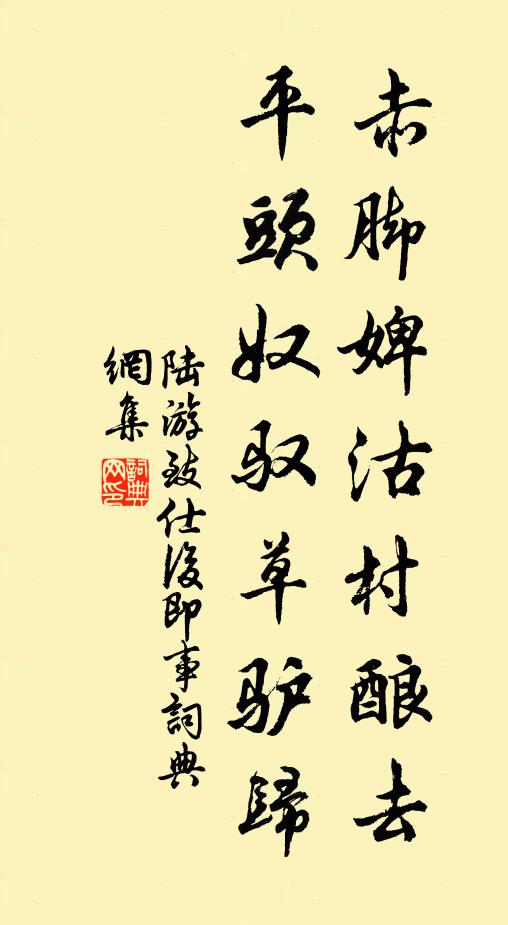 赤脚婢沽村酿去
平頭奴驭草驴歸
陆游致仕後即事詞典
網集
詞典
网印